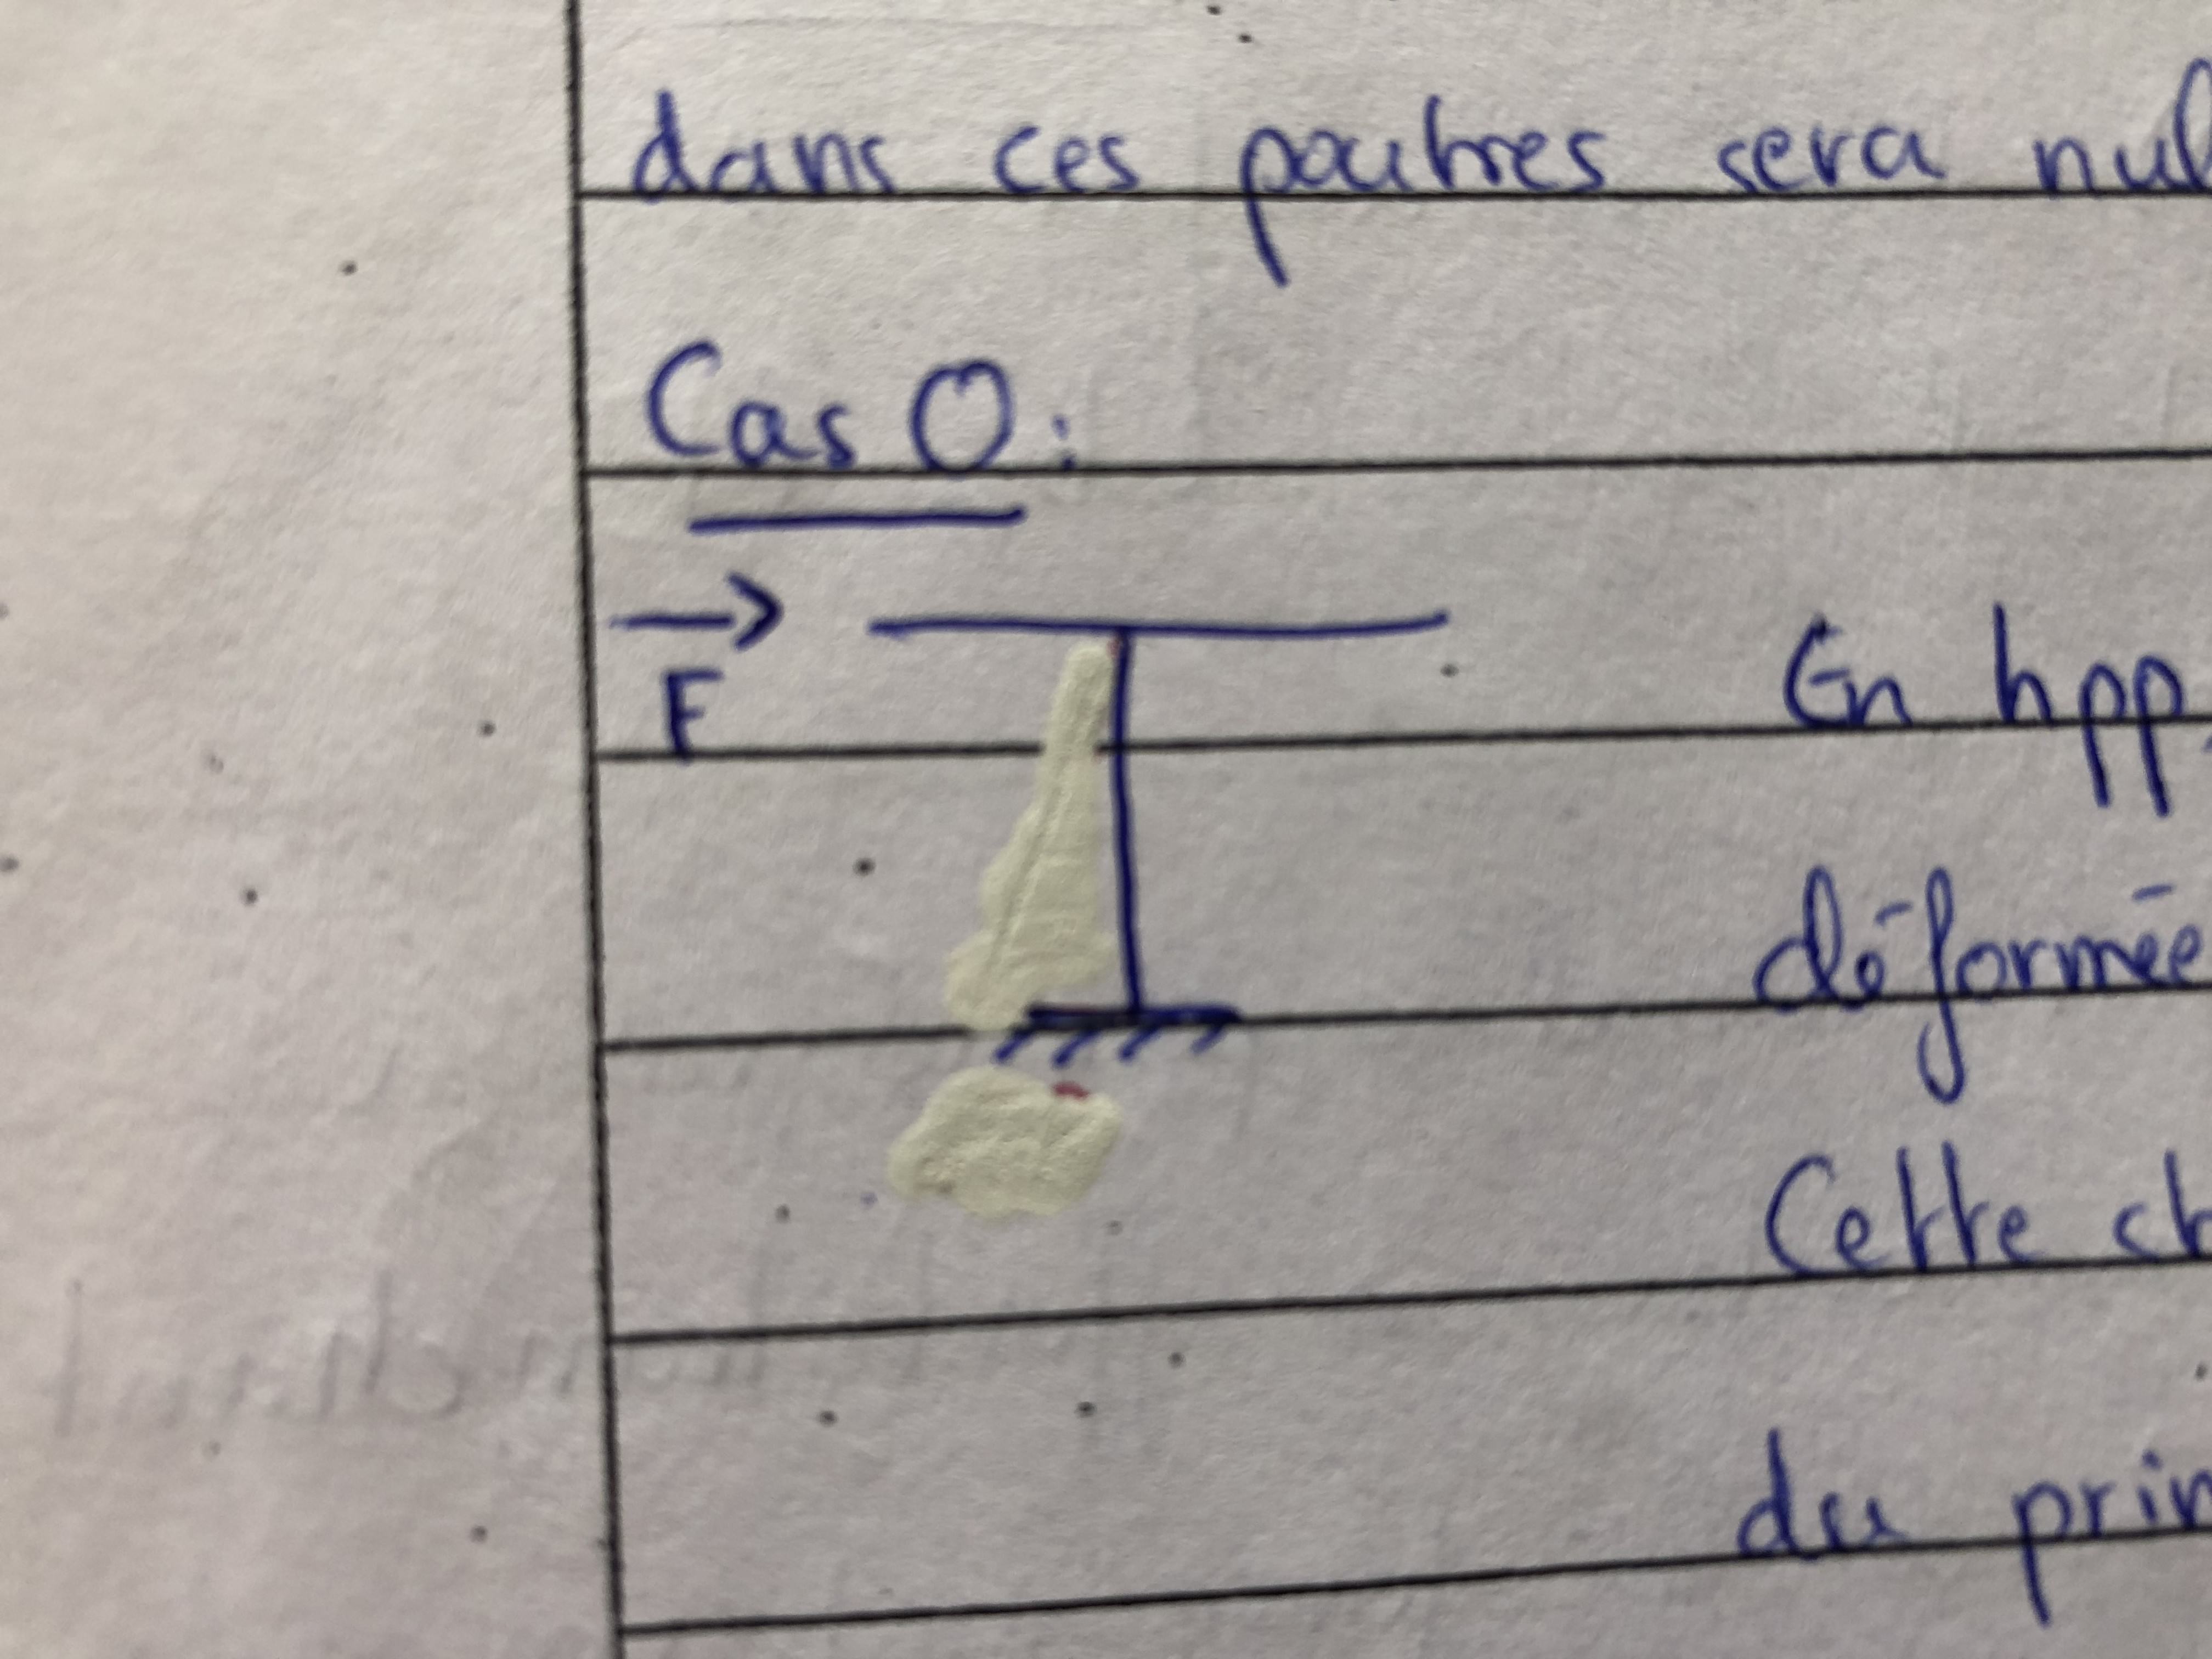 dans ces pautres sera nul
Cas 0:
F
En hpp
déformée
Cette ch
du prin